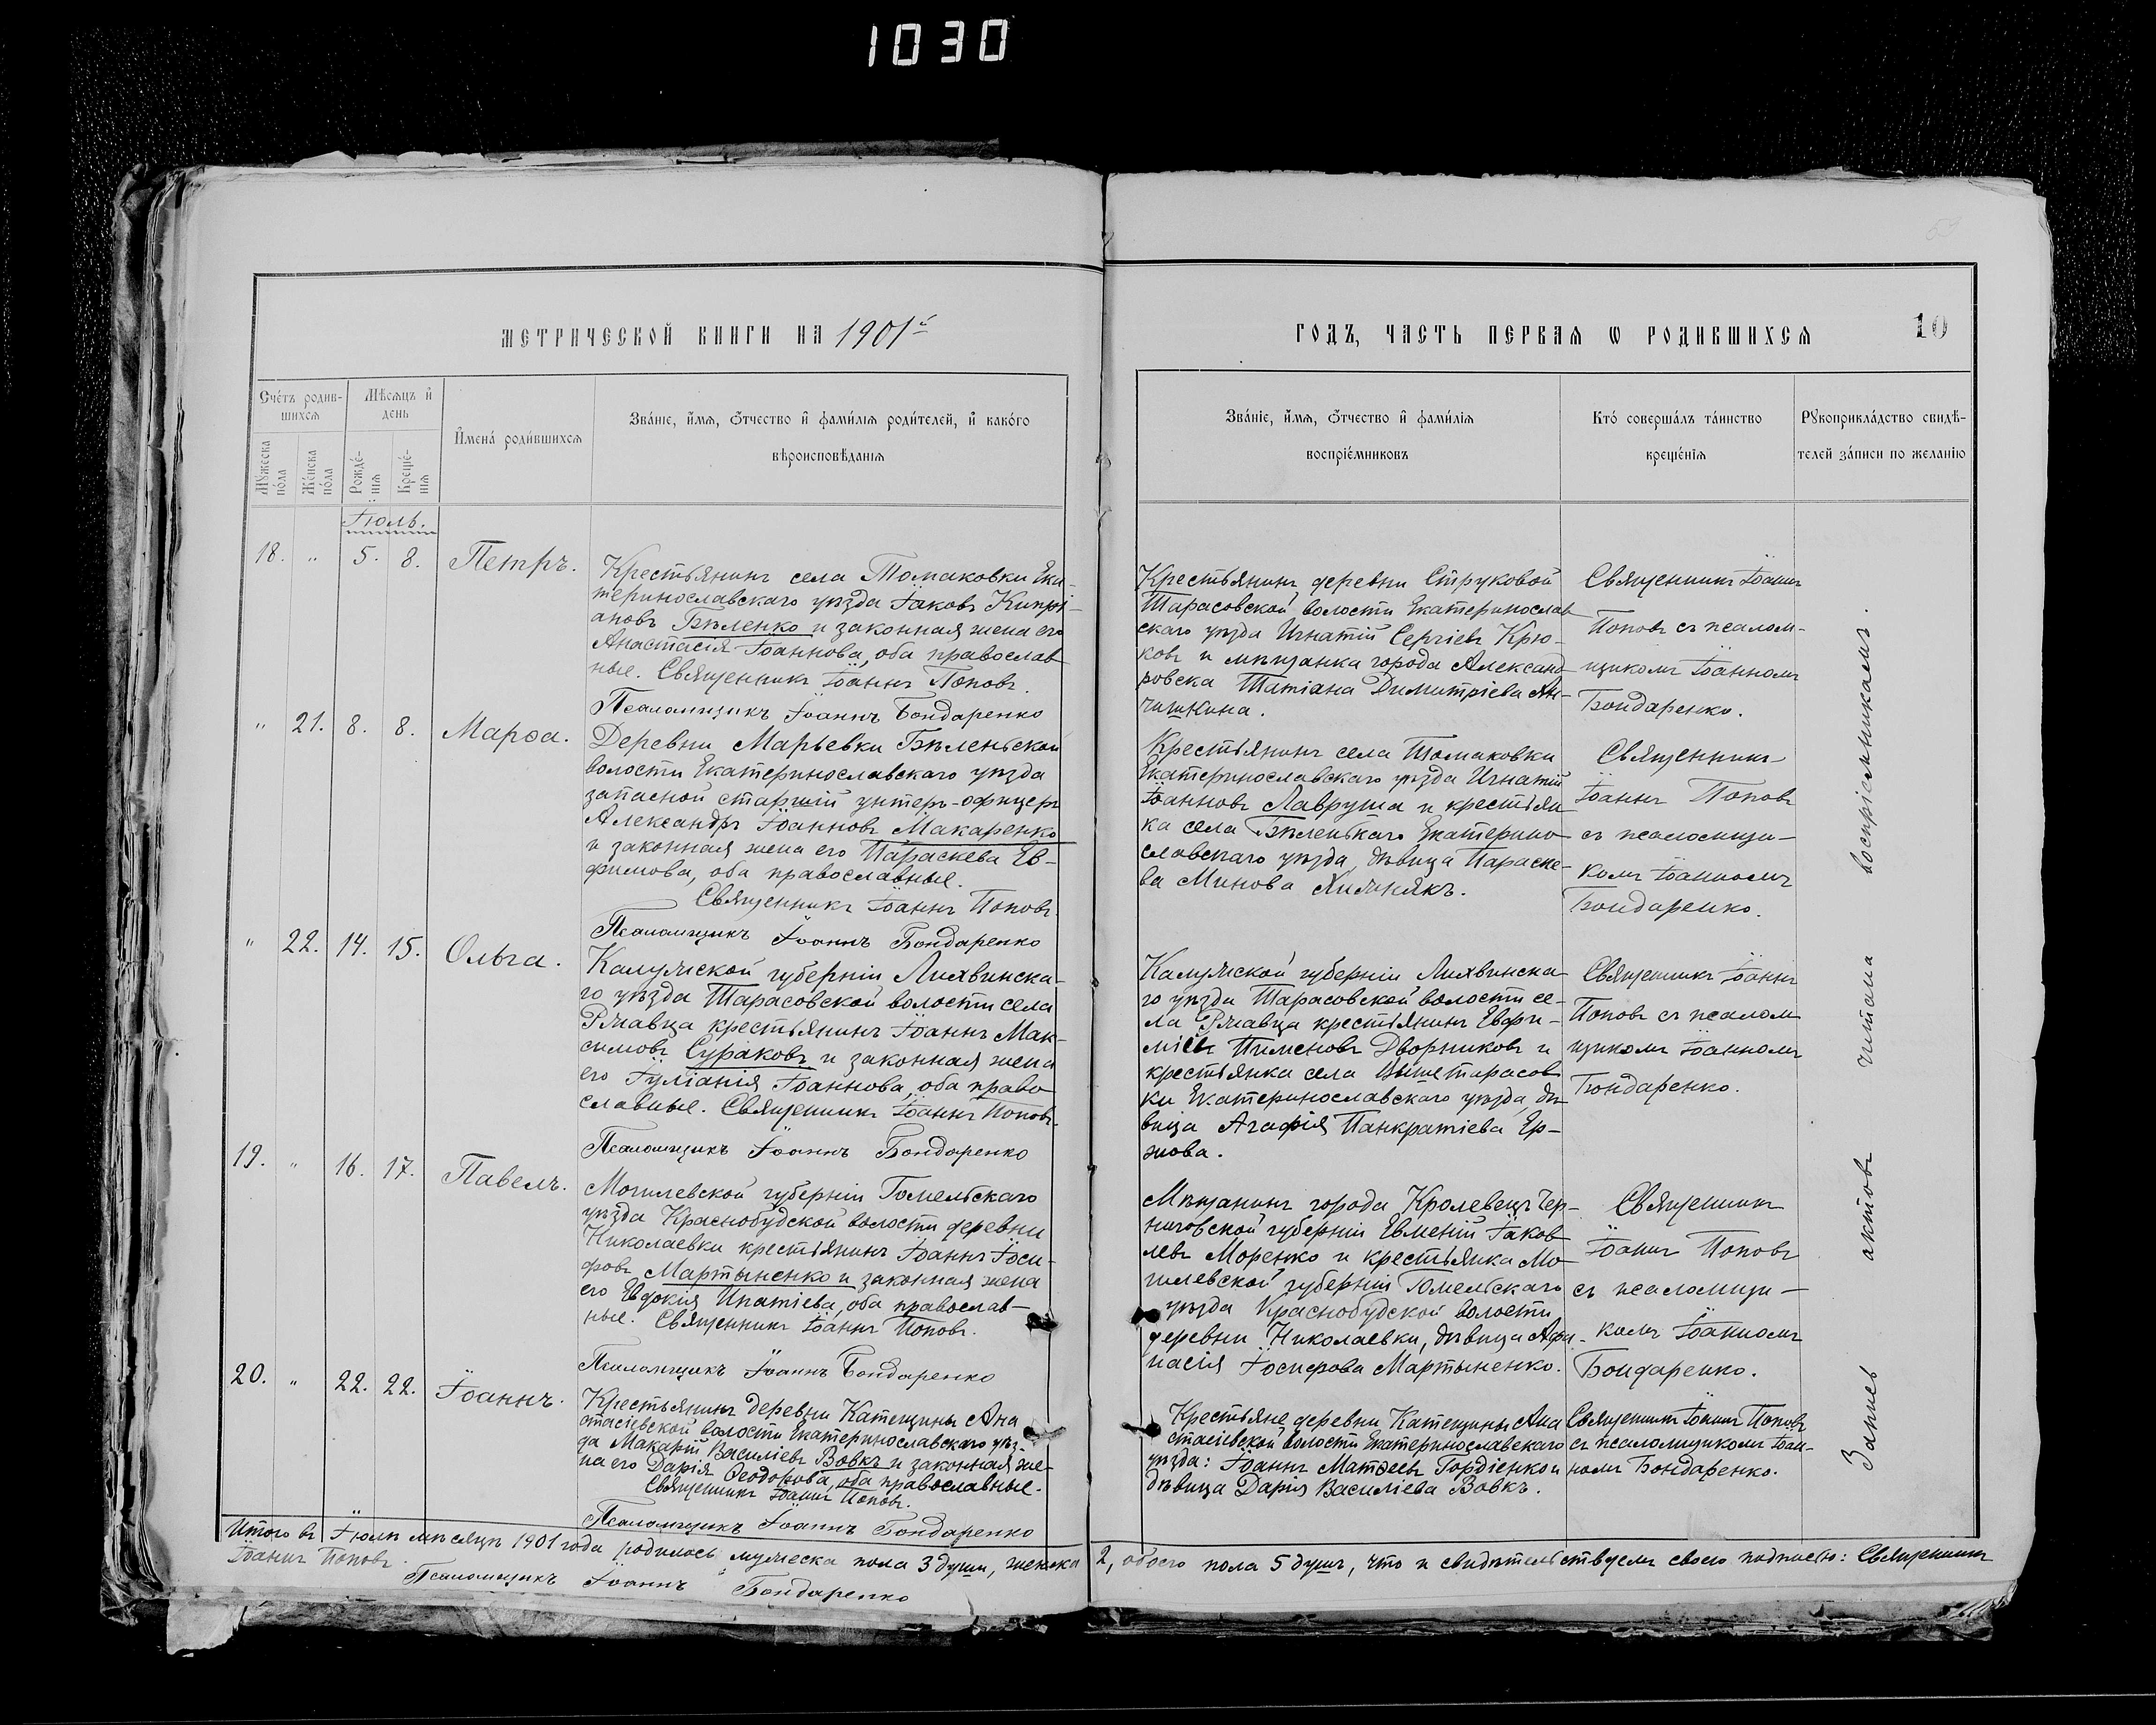 1030
МЕТРИЧЕСКОЙ КНИГИ НА 1901й
ГОДЪ, ЧАСТЬ ПЕРВАѦ Ѡ РОДИВШИХСѦ
10
Сче́тъ родив-
шихсѧ
Мѣ́сѧцъ и҆
день
Мꙋ́жеска
по́ла
Же́нска
по́ла
Рожде́-
нїѧ
Креще́-
нїѧ
И҆мена̀ роди́вшихсѧ
Зва́нїе, и҆́мѧ, ѻ҆́тчество и҆ фами́лїѧ роди́телей, и҆ како́гѡ
вѣроисповѣ́данїѧ
Зва́нїе, и҆́мѧ, ѻ҆́тчество и҆ фами́лїѧ
воспрїе́мниковъ
Кто̀ соверша́лъ та́инство
креще́нїѧ
Рꙋкоприкла́дство свидѣ́-
телей за́писи по жела́нїю
Іюль.
18. „ 5. 8. Петръ.
Крестьянинъ села Томаковки Ека-
теринославскаго уѣзда Іаковъ Кипрі-
ановъ Бѣленко и законная жена его
Анастасія Іоаннова, оба православ-
ные. Священникъ Іоаннъ Поповъ.
Псаломщикъ Іоаннъ Бондаренко
Крестьянинъ деревни Струковой
Тарасовской волости Екатеринослав-
скаго уѣзда Игнатій Сергіевъ Крю-
ковъ и мѣщанка города Александ-
ровска Татіана Димитріева Ян-
чишкина.
Священникъ Іоаннъ
Поповъ съ псалом-
щикомъ Іоанномъ
Бондаренко.
„ 21. 8. 8. Марѳа.
Деревни Марьевки Бѣленьской
волости Екатеринославскаго уѣзда
запасной старшій унтеръ-офицеръ
Александръ Іоанновъ Макаренко
и законная жена его Параскева Ев-
фимова, оба православные.
Священникъ Іоаннъ Поповъ.
Псаломщикъ Іоаннъ Бондаренко
Крестьянинъ села Томаковки
Екатеринославскаго уѣзда Игнатій
Іоанновъ Лавруша и крестьян-
ка села Бѣленькаго Екатерино-
славскаго уѣзда, дѣвица Параске-
ва Минова
Священникъ
Іоаннъ Поповъ
съ псаломщи-
комъ Іоанномъ
Бондаренко.
„ 22. 14. 15. Ольга.
Калужской губерніи Лихвинска-
го уѣзда Тарасовской волости села
Ржавца крестьянинъ Іоаннъ Мак-
симовъ Сураковъ и законная жена
его Іуліанія Іоаннова, оба право-
славные. Священникъ Іоаннъ Поповъ.
Псаломщикъ Іоаннъ Бондаренко
Калужской губерніи Лихвинска-
го уѣзда Тарасовской волости се-
ла Ржавца крестьянинъ Евфи-
мій Пименовъ Дворниковъ и
крестьянка села Вышетарасов-
ки Екатеринославскаго уѣзда, дѣ-
вица Агафія Панкратіева Ер-
жова.
Священникъ Іоаннъ
Поповъ съ псалом-
щикомъ Іоанномъ
Бондаренко.
19. „ 16. 17. Павелъ.
Могилевской губерніи Гомельскаго
уѣзда Краснобудской волости деревни
Николаевки крестьянинъ Іоаннъ Іоси-
фовъ Мартыненко и законная жена
его Евдокія Ипатіева, оба православ-
ные. Священникъ Іоаннъ Поповъ.
Псаломщикъ Іоаннъ Бондаренко
Мѣщанинъ города Кролевецъ Чер-
ниговской губерніи Евменій Іаков-
левъ Моренко и крестьянка Мо-
гилевской губерніи Гомельскаго
уѣзда Краснобудской волости
деревни Николаевки, дѣвица Афа-
насія Іосифова Мартыненко.
Священникъ
Іоаннъ Поповъ
съ псаломщи-
комъ Іоанномъ
Бондаренко.
20. „ 22. 22. Іоаннъ.
Крестьянинъ деревни Катещины Ана-
стасіевской волости Екатеринославскаго уѣз-
да Макарій Василіевъ Вовкъ и законная же-
на его Дарія Ѳеодорова, оба православные.
Священникъ Іоаннъ Поповъ.
Псаломщикъ Іоаннъ Бондаренко
Крестьяне деревни Катещины Ана-
стасіевской волости Екатеринославскаго
уѣзда: Іоаннъ Матѳеевъ Гордіенко и
дѣвица Дарія Василіева Вовкъ.
Священникъ Іоаннъ Поповъ
съ псаломщикомъ Іоан-
номъ Бондаренко.
Запись актовъ читана воспріемникамъ.
Итого въ Іюлѣ мѣсяцѣ 1901 года родилось мужеска пола 3 души, женска 2, обоего пола 5 душъ, что и свидѣтельствуемъ своею подписью: Священникъ
Іоаннъ Поповъ.
Псаломщикъ Іоаннъ Бондаренко